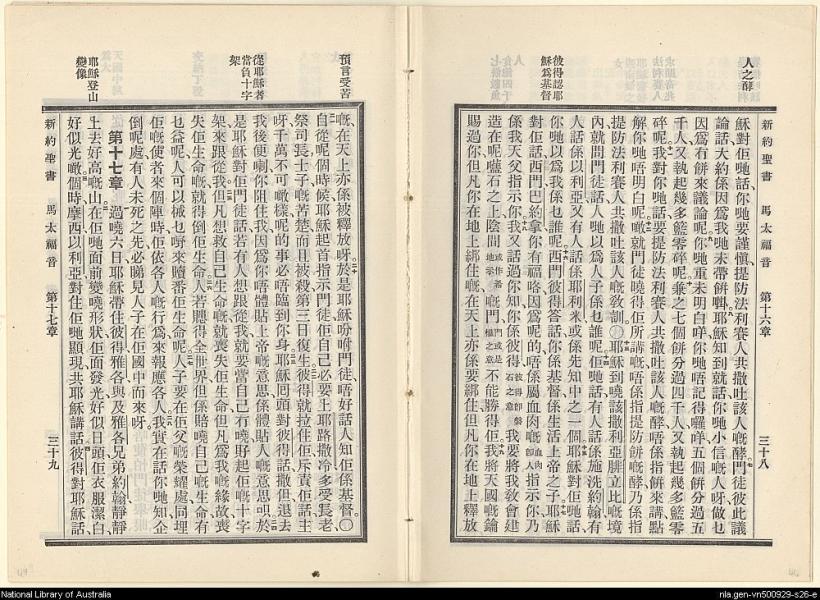 人之酵
彼得認耶
穌爲基督
新約聖書 馬太福音 第十六章 三十八
穌對佢哋話你哋要謹愼提防法利賽人共撒吐該人嘅酵門徒彼此議
論話大約係因爲我哋未帶餅嘅耶穌知到就話你哋小信嘅人呀做乜
因爲冇餅來議論呢你哋重未明白咩你哋唔記得囉咩五個餅分過五
千人又執起幾多籃零碎呢兼之七個餅分過四千人又執起幾多籃零
碎呢我對你哋話要提防法利賽人共撒吐該人嘅酵唔係指餅來講點
解你哋唔明白呢噉就門徒曉得佢所講嘅唔係指提防餅嘅酵乃係指
提防法利賽人共撒吐該人嘅敎訓〇耶穌到嘵該撒利亞腓立比嘅境
內就問門徒話人哋以爲人子係乜誰呢佢哋話有人話係施洗約翰有
人話係以利亞又有人話係耶利米或係先知中之一個耶穌對佢哋話
你哋以爲我係乜誰呢西門彼得答話你係基督係生活上帝之子耶穌
對佢話西門巴約拿你有福咯因爲呢的唔係屬血肉嘅指示你乃
係我天父指示你我又話過你知你係彼得我要將我敎會建
造在呢嚿石之上陰間嘅門不能勝得佢我將天國嘅鑰
賜過你但凡你在地上綁住嘅在天上亦係要綁住但凡你在地上釋放
預言受苦
從耶穌者
當負十字
架
耶穌登山
變像
嘅在天上亦係被釋放呀於是耶穌吩咐門徒唔好話人知佢係基督〇
自從呢個時候耶穌起首指示門徒佢自己必要上耶路撒冷多受長老
祭司長士子嘅苦楚而且被殺第三日復生彼得就拉住佢斥責佢話主
呀千萬不可噉樣呢的事必唔臨到你身耶穌囘頭對彼得話撒但退去
我後便喇你阻住我因爲你唔體貼上帝嘅意思係體貼人嘅意思呮於
是耶穌對佢門徒話若有人想跟從我就要當自己冇嘵孭起佢嘅十字
架來跟從我但凡想救自己生命嘅就喪失佢生命但凡爲我嘅緣故喪
失佢生命嘅就得倒佢生命人若賺得全世界但係賠嘵自己嘅生命有
乜益呢人可以搣乜嘢來贖番佢生命呢人子要在佢父嘅榮耀處同埋
佢嘅使者來個陣時佢依各人嘅行爲來報應各人我實在話你哋知企
倒呢處有人未死之先必睇見人子在佢國中而來呀
第十七章 過嘵六日耶穌帶住彼得雅各與及雅各兄弟約翰靜靜
上去好高嘅山在佢哋面前變嘵形狀佢面發光好似日頭佢衣服潔白
好似光噉個時摩西以利亞對住佢哋顯現共耶穌講話彼得對耶穌話
新約聖書 馬太福音 第十七章 三十九
National Library of Australia
nla.gen-vn500929-s26-e